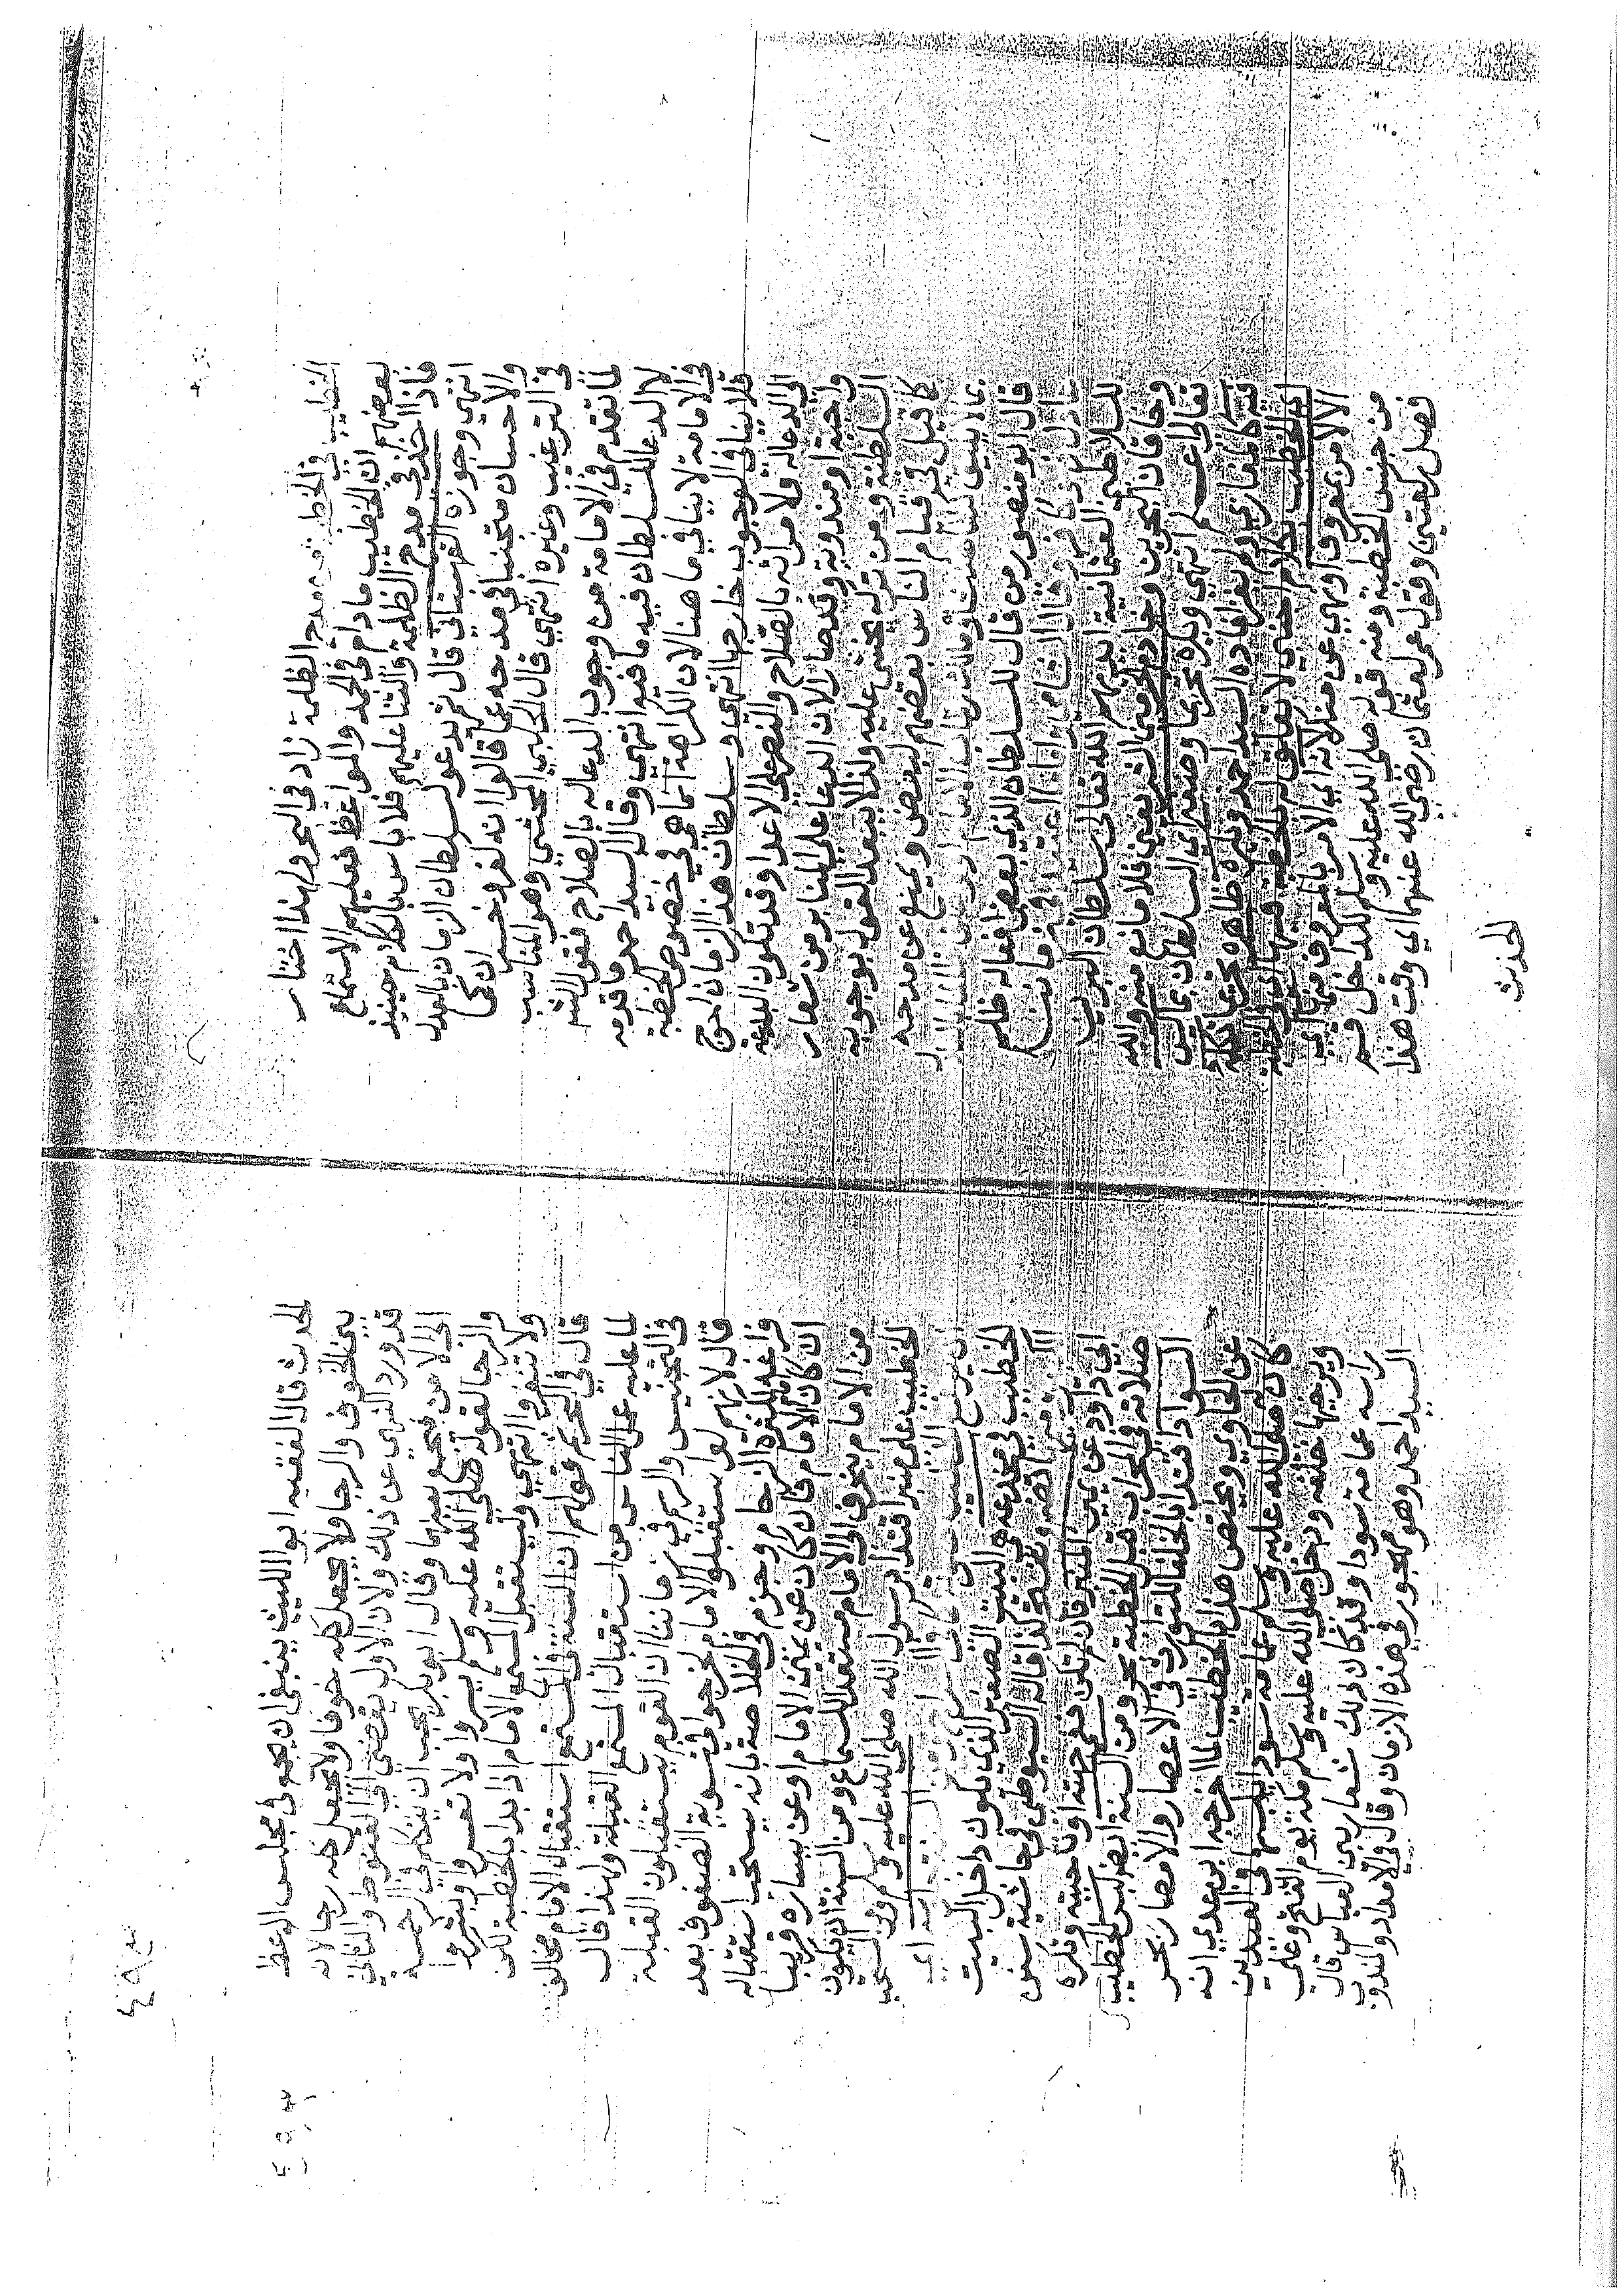 الخطيب في الخطبة من مدح الظلمة زاد في البحر ولهذا اختار
بعضهم ان الخطيب مادام في الحمد والمواعظ فعليهم الاستماع
فاذا اخذ في مدح الظلمة والثنا عليهم فلا باس بالكلام حينيذ
انتهى وجوزه القهستاني قال ثم يدعو لسلطان الزمان بالعدل
والاحسان متجنبا في مدحه عما قالوا انه كفر وخسران كما
في الترغيب وغيره انتهى قال الحلبي المحشي وهو المناسب
لما تقدم في الامامة من وجوب الدعا له بالصلاح فقول الشم
لا الدعا للسلطان فيه ما فيه انتهى وقال السيد احمد ما قدمه
في الامامة لا ينافي ما هنا لان الكراهة انما هي في خصوص الخطبة
فلا ينافي الوجوب خارجها انتهى وسلطان هذا الزمان احوج
الى الدعا له ولامرائه بالصلاح والنصر على الاعدا وقد تكون البدعة
واجبة او مندوبة وقد صار الان الدعا على المنابر من شعار
السلطنة ومن تركه يخشى عليه ولذا لا يبعد القول بوجوبه
كما قيل في قيام الناس بعضهم لبعض ويمنع عن مدحه
بما لا يليق
قال ابو منصور من قال للسلطان الذي بعض افعاله ظلم
عادل فهو كافر زماننا
للسلاطين العثمانية ايدهم الله تعالى سلطان البرين
وخاقان البحرين وخادم الحرمين الشريفين فلا مانع منه والله
تعالى اعلم انتهى ويكره تحريما وصفه اي السلطان بما ليس
فيه كغازي ولم يغز افاده السيد احمد ويكره ظاهره تحريما تكلمه
اي الخطيب بكلام اجنبي لا تعلق له بالخطبة فيها اي الخطبة
الا الامر بمعروف او نهي عن منكر لانه اي الامر بالمعروف منها اي
من جنس الخطبة ومنه قوله صلى الله عليه وسلم للداخل قم
فصل ركعتين وقول عمر لعثمان رضي الله عنهما اي وقت هذا
الحدث
الحدث قال الفقيه ابو الليث ينبغي ان يكون في مجلس الوعظ
بين الخوف والرجا ولا يجعل كله خوفا ولا يجعل كله رجا لانه
قد ورد النهي عن ذلك ولان الاول يفضي الى القنوط والثاني
الى الامن فيجمع بينهما وقال ابو بكر يجب ان يتكلم في الرحمة
والرجا لقوله صلى الله عليه وسلم يسروا ولا تعسروا وبشروا
ولا تنفروا انتهى ويستقبل المستمع الامام اذا بدا بالخطبة لكن
قال في التحرير قولهم ان السنة في المستمع استقبال الامام مخالف
لما عليه عمل الناس من استقبال المستمع القبلة ولهذا قال
في التجنيس والرسم في زماننا ان القوم يستقبلون القبلة
قال لانهم لو استقبلوا الامام لخرجوا في تسوية الصفوف بعد
فراغه لكثرة الزحام وجزم في الخلاصة بانه يستحب استقباله
ان كان امام الامام فان كان عن يمين الامام او عن يساره قريبا
من الامام ينحرف الى الامام مستعدا للسماع ومن السنة ان يكون
الخطيب على منبر اقتدا برسول الله صلى الله عليه وسلم ومن المستحب
الخطيب في مخدعه هي البيت الصغير الذي يكون داخل البيت
الكبير وتضم ميمه وتفتح كذا قاله السيوطي في حاشية سنن
ابي داود عن يمين المنبر فان لم تكن ففي جهته او ناحيته وتكره
صلاته في المحراب قبل الخطبة بحر ومن السنة ايضا لبس الخطيب
السواد اقتدا بالخلفا للتوارث في الاعصار والامصار بحر
عن الحاوي ويختص هذا بالخطيب لما اخرجه ابن عدي انه
كان له صلى الله عليه وسلم عمامة سودا يلبسها في العيدين
ويرخيها خلفه ودخل صلى الله عليه وسلم مكة يوم الفتح وعلى
راسه عمامة سودا وقد كان ذلك شعار بني العباس قال
السيد احمد وهو مهجور في هذه الازمان وقال في الامداد والمندوب